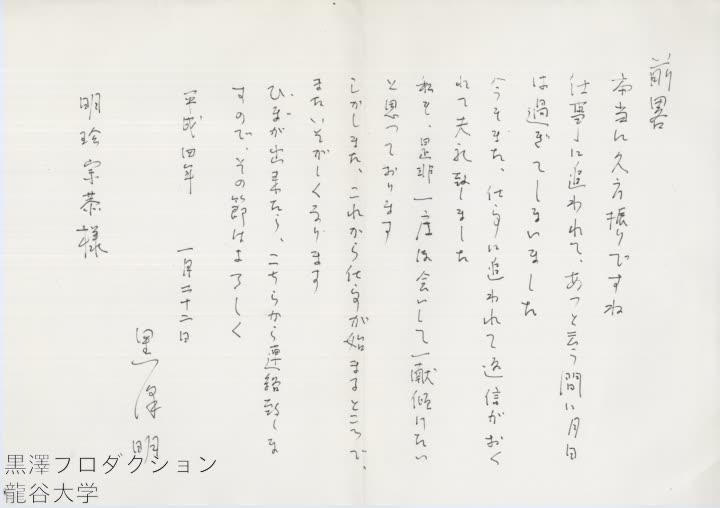 前畧
本当に久方振りですね
仕事に追われて、あっと云う間に月日
は過ぎてしまいました
今もまた、仕事に追われて返信がおく
れて失礼致しました
私も、是非一度お会いして一献傾けたい
と思っております
しかしまた、これから仕事が始まるところで、
またいそがしくなります
ひまが出来たら、こちらから連絡致しま
すので、その節はよろしく
平成四年 一月二十二日
黒澤明
明珍宗恭様
黒澤プロダクション
龍谷大学